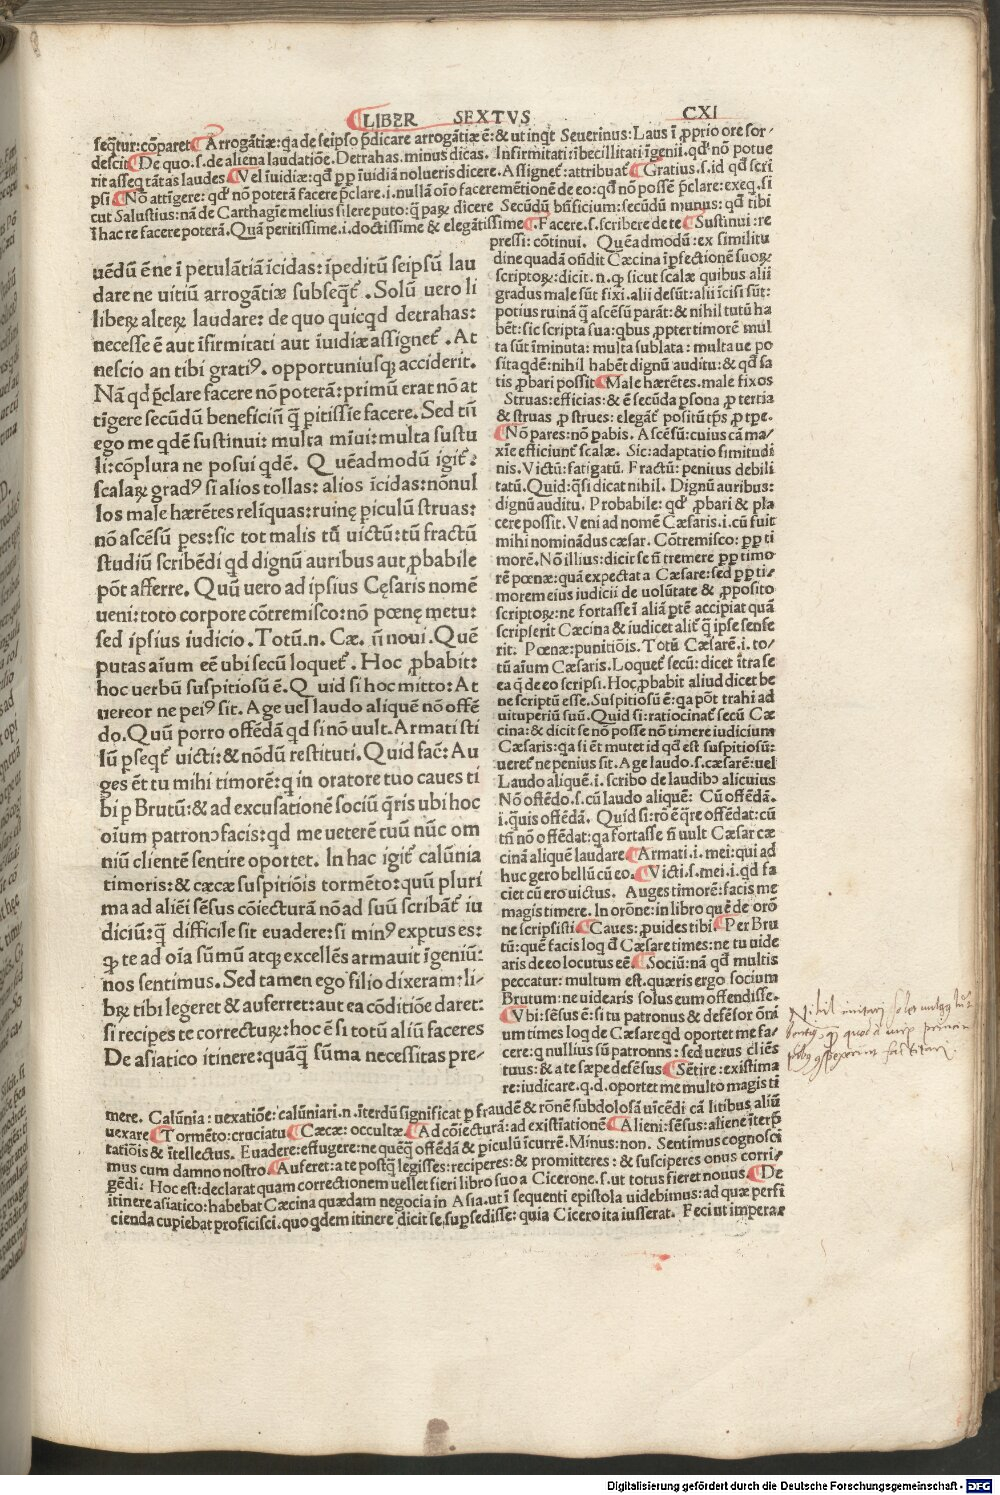 LIBER SEXTVS CXI
seq̃tur: cõparet Arrogãtiæ: q̃a de seipso p̃dicare arrogãtiæ ē: & ut inqt Seuerinus: Laus ī ꝓprio ore sor-
descit De quo. s. de aliena laudatiõe. Detrahas. minus dicas. Infirmitati: ībecillitati īgenii. qd' nõ potue
rit asseq tãtas laudes Vel īuidiæ: qđ ꝑp īuidiã nolueris dicere. Assignet̃: attribuat̃ Gratius. s. id qđ scri
psi Nõ attīgere: qd' nõ poterã facere p̃clare. i. nullã oīo facere mētionē de eo: qđ nõ possē p̃clare: exeq. si
cut Salustius: nã de Carthagīe melius silere puto: q̃ paꝝ dicere Secũdũ bñficium: secũdũ munus: qđ tibi
ī hac re facere poterã. Quã peritissime. i. doctissime & elegãtissime Facere. s. scribere de te Sustinui: re
uēdũ ē ne ī petulãtiã īcidas: īpeditũ seipsũ lau
dare ne uitiũ arrogãtiæ subseq̃t̃. Solũ uero li
beꝝ alteꝝ laudare: de quo quicqđ detrahas:
necesse ē aut īfirmitati aut īuidiæ assignet̃. At
nescio an tibi gratiꝰ. opportuniusqꝫ acciderit.
Nã qđ p̃clare facere nõ poterã: primũ erat nõ at
tīgere secũdũ beneficiũ q̃ ꝑitissīe facere. Sed tñ
ego me qdē sustinui: multa mīui: multa sustu
li: cõplura ne posui qdē. Quēadmodũ igit̃:
scalaꝝ gradꝰ si alios tollas: alios īcidas: nõnul
los male hærētes relīquas: ruinę ꝑiculũ struas:
nõ ascēsũ ꝑes: sic tot malis tũ uictũ: tũ fractũ
studiũ scribēdi qđ dignũ auribus aut ꝓbabile
põt afferre. Quũ uero ad ipsius Cęsaris nomē
ueni: toto corpore cõtremisco: nõ pœnę metu:
sed ipsius iudicio. Totũ. n. Cæ. ñ noui. Quē
putas aīum eē ubi secũ loquet̃. Hoc ꝓbabit:
hoc uerbũ suspitiosũ ē. Quid si hoc mitto: At
uereor ne peiꝰ sit. Age uel laudo aliquē nõ offē
do. Quũ porro offēdã qđ si nõ uult. Armati sti
lũ ꝑseqt̃ uicti: & nõdũ restituti. Quid fac̃: Au
ges ēt tu mihi timorē: q in oratore tuo caues ti
bi ꝑ Brutũ: & ad excusationē sociũ q̃ris ubi hoc
oīum patronꝰ facis: qđ me ueterē tuũ nũc om
niũ clientē sentire oportet. In hac igit̃ calũnia
timoris: & cæcæ suspitiõis tormēto: quũ pluri
ma ad aliēi sēsus cõiecturã nõ ad suũ scribãt̃ iu
diciũ: q̃ difficile sit euadere: si minꝰ exꝑtus es:
qꝫ te ad oīa sũmũ atqꝫ excellēs armauit īgeniũ:
nos sentimus. Sed tamen ego filio dixeram: li-
bꝝ tibi legeret & auferret: aut ea cõditiõe daret:
si recipes te correctuꝝ: hoc ē si totũ aliũ faceres
De asiatico itinere: quãq̃ sũma necessitas pre-
pressi: cõtinui. Quēadmodũ: ex similitu
dine quadã oñdit Cæcina īpfectionē suoꝝ
scriptoꝝ: dicit. n. ꝙ sicut scalæ quibus alii
gradus male sũt fixi. alii desũt: alii īcisi sũt:
potius ruinã q̃ ascēsũ parãt: & nihil tutũ ha
bēt: sic scripta sua: qbus ꝓpter timorē mul
ta sũt īminuta: multa sublata: multa ue po
sita qdē: nihil habēt dignũ auditu: & qđ sa
tis ꝓbari possit Male hærētes. male fixos
Struas: efficias: & ē secũda ꝑsona ꝓ tertia
& struas ꝓ strues: elegãt̃ positũ tp̃s ꝓ tꝑe.
Nõ pares: nõ ꝑabis. Ascēsũ: cuius cã ma-
xīe efficiunt̃ scalæ. Sic: adaptatio similtudi
nis. Victũ: fatigatũ. Fractũ: penitus debili
tatũ. Quid: q̃si dicat nihil. Dignũ auribus:
dignũ auditu. Probabile: qd' ꝓbari & pla
cere possit. Veni ad nomē Cæsaris. i. cũ fuit
mihi nominãdus cæsar. Cõtremisco: ꝑp ti
morē. Nõ illius: dicit se ñ tremere ꝑp timo
rē pœnæ: quã expectat a Cæsare: sed ꝑp ti-
morem eius iudicii de uolũtate & ꝓposito
scriptoꝝ: ne fortasse ī aliã ꝑtē accipiat quã
scripserit Cæcina & iudicet alit̃ q̃ ipse sense
rit. Pœnæ: punitiõis. Totũ Cæsarē. i. to-
tũ aīum Cæsaris. Loquet̃ secũ: dicet ītra se
ea q̃ de eo scripsi. Hoc ꝓbabit aliud dicet be
ne scriptũ esse. Suspitiosũ ē: qa põt trahi ad
uituperiũ suũ. Quid si: ratiocinat̃ secũ Cæ
cina: & dicit se nõ posse nõ timere iudicium
Cæsaris: qa si ēt mutet id qđ est suspitiosũ:
ueret̃ ne penius sit. Age laudo. s. cæsarē: uel
Laudo aliquē. i. scribo de laudibꝰ alicuius
Nõ offēdo. s. cũ laudo aliquē: Cũ offēdã.
i. q̃uis offēdã. Quid si: rõ ē q̃re offēdat: cũ
tñ nõ offēdat: qa fortasse ñ uult Cæsar cæ
cinã aliquē laudare Armati. i. mei: qui ad
huc gero bellũ cũ eo. Victi. s. mei. i. qđ fa
ciet cũ ero uictus. Auges timorē: facis me
magis timere. In orõne: in libro quē de orõ
ne scripsisti Caues: ꝓuides tibi Per Bru
tũ: quē facis loq đ Cæsare times: ne tu uide
aris de eo locutus eē. Sociũ: nã qđ multis
peccatur: multum est. quæris ergo socium
Brutum: ne uidearis solus eum offendisse.
Vbi: sēsus ē: si tu patronus & defēsor õni
um times loq de Cæsare qđ oportet me fa-
cere: q nullius sũ patronns: sed uerus cliēs
tuus: & a te sæpe defēsus Sētire: existima
re: iudicare. q. d. oportet me multo magis ti
mere. Calũnia: uexatiõe: calũniari. n. īterdũ significat ꝑ fraudē & rõnē subdolosã uīcēdi cã litibus aliũ
uexare Tormēto: cruciatu Cæcæ: occultæ. Ad cõiecturã: ad existīationē Alieni: sēsus: aliene īterp̃
tatiõis & ītellectus. Euadere: effugere: ne quēq̃ offēdã & ꝑiculũ īcurrē. Minus: non. Sentimus cognosci
mus cum damno nostro Auferet: a te postq̃ legisses: reciperes: & promitteres: & susciperes onus corri-
gēdi: Hoc est: declarat quam correctionem uellet fieri libro suo a Cicerone. s. ut totus fieret nouus. De
itinere asiatico: habebat Cæcina quædam negocia in Asia. ut ī sequenti epistola uidebimus: ad quæ perfi
cienda cupiebat proficisci. quo qdem itinere dicit se suꝑsedisse: quia Cicero ita iusserat. Feci ut imperar
Digitalisierung gefördert durch die Deutsche Forschungsgemeinschaft - DFG